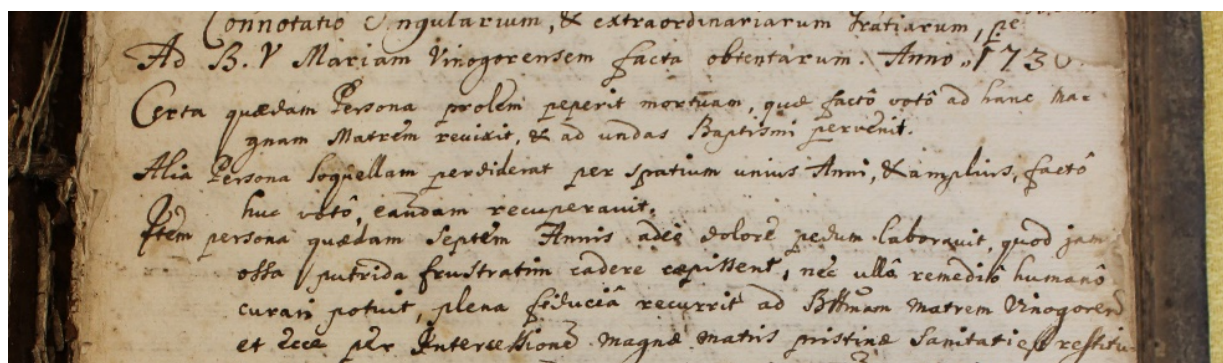 Connotatio Singularium, & extraordinariarum Gratiarum,
Ad B. V Mariam Vinogorensem facta obtentarum. Anno 1730.
Certa quædam Persona prolem peperit mortuam, quæ factô votô ad hanc ma-
gnam Matrem revixit, & ad undas Baptismi pervenit.
Alia Persona loquellam perdiderat per spatium unius Anni, & amplius, factô
huc votô, eandem recuperavit.
Item persona quædam Septem Annis adeo dolore pedum laboravit, quod jam
ossa putrida frustratim cadere cœpissent, nec ullô remediô humanô
curari potuit, plena fiduciâ recurrit ad Bttmam Matrem Vinogoren
et Ecce per Intercessione magnæ matris pristinæ Sanitati est restitu